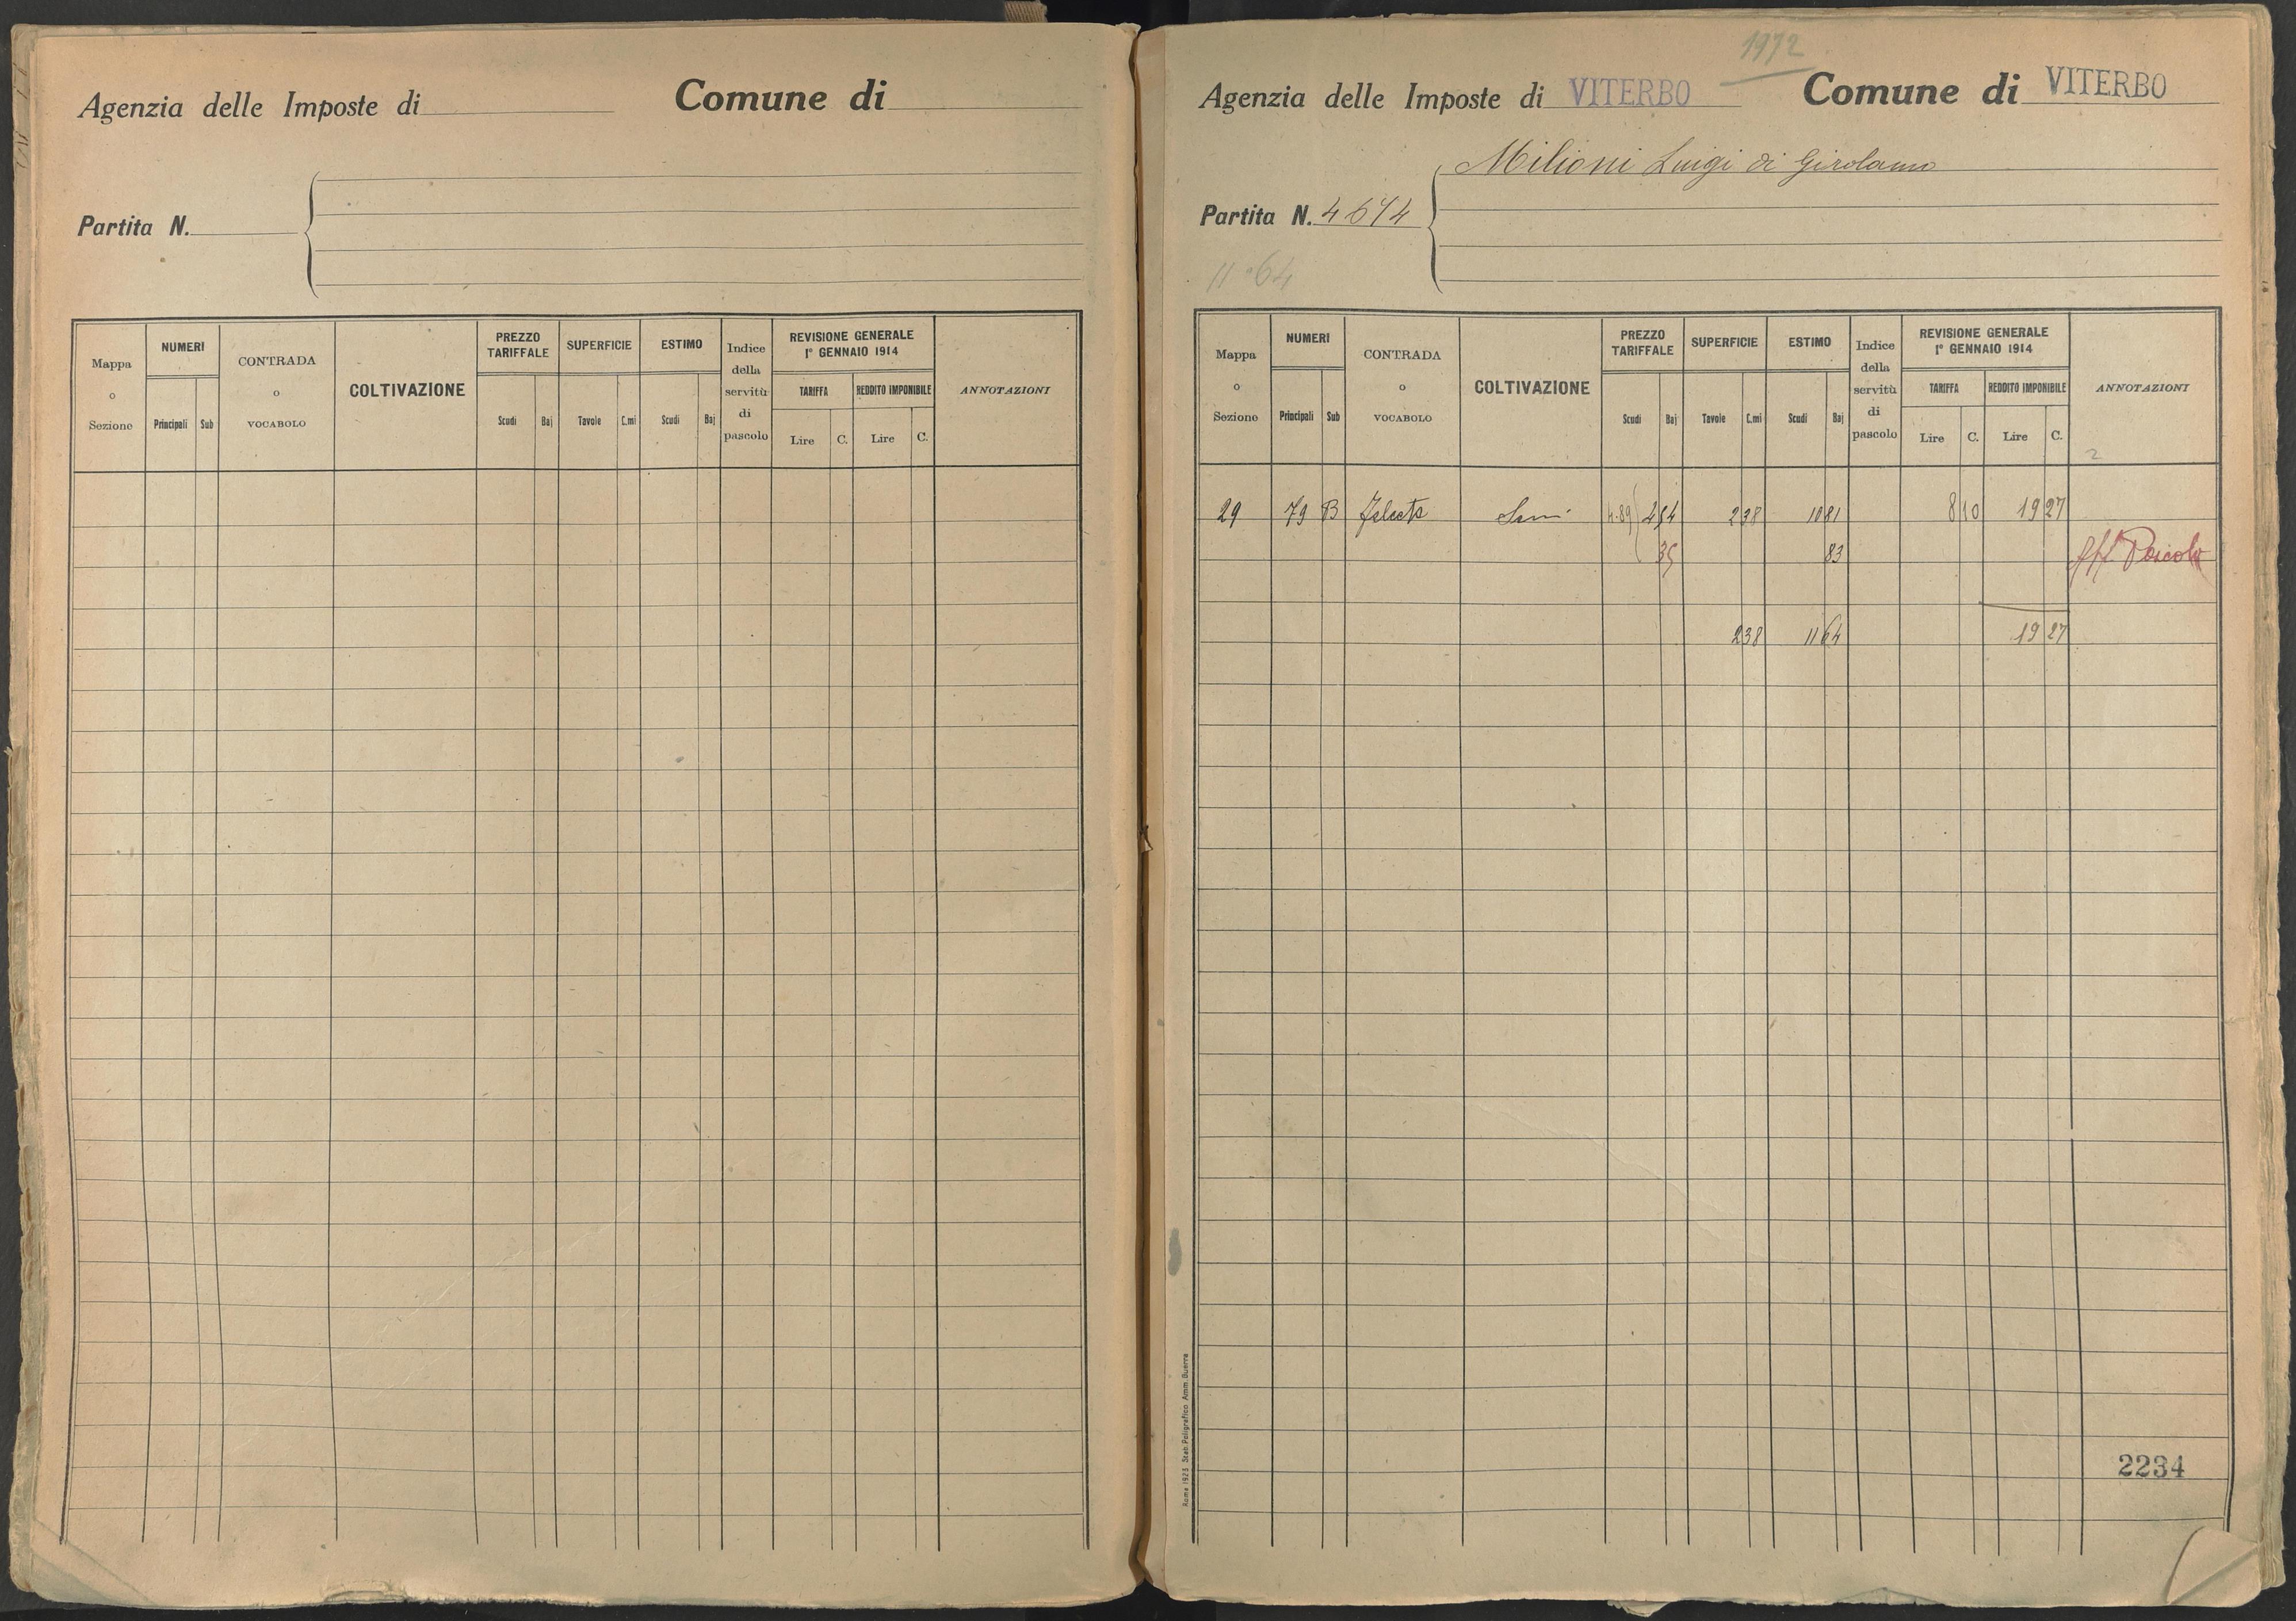 Agenzia delle Imposte di
Comune di
Partita N.
Mappa o Sezione
NUMERI
Principali Sub
CONTRADA o VOCABOLO
COLTIVAZIONE
PREZZO TARIFFALE
Scudi Baj
SUPERFICIE
Tavole C.mi
ESTIMO
Scudi Baj
Indice della servitù di pascolo
REVISIONE GENERALE
1° GENNAIO 1914
TARIFFA
Lire C.
REDDITO IMPONIBILE
Lire C.
ANNOTAZIONI
1972
Agenzia delle Imposte di VITERBO
Comune di VITERBO
Milioni Luigi di Girolamo
Partita N. 4674
11.64
Mappa o Sezione
NUMERI
Principali Sub
CONTRADA o VOCABOLO
COLTIVAZIONE
PREZZO TARIFFALE
Scudi Baj
SUPERFICIE
Tavole C.mi
ESTIMO
Scudi Baj
Indice della servitù di pascolo
REVISIONE GENERALE
1° GENNAIO 1914
TARIFFA
Lire C.
REDDITO IMPONIBILE
Lire C.
ANNOTAZIONI
2
29 79 B 4.89 454 238 1081 8 10 19 27
35 83
238 1164 19 27
2234
Roma 1923 Stab. Poligrafico Amm. Guerra